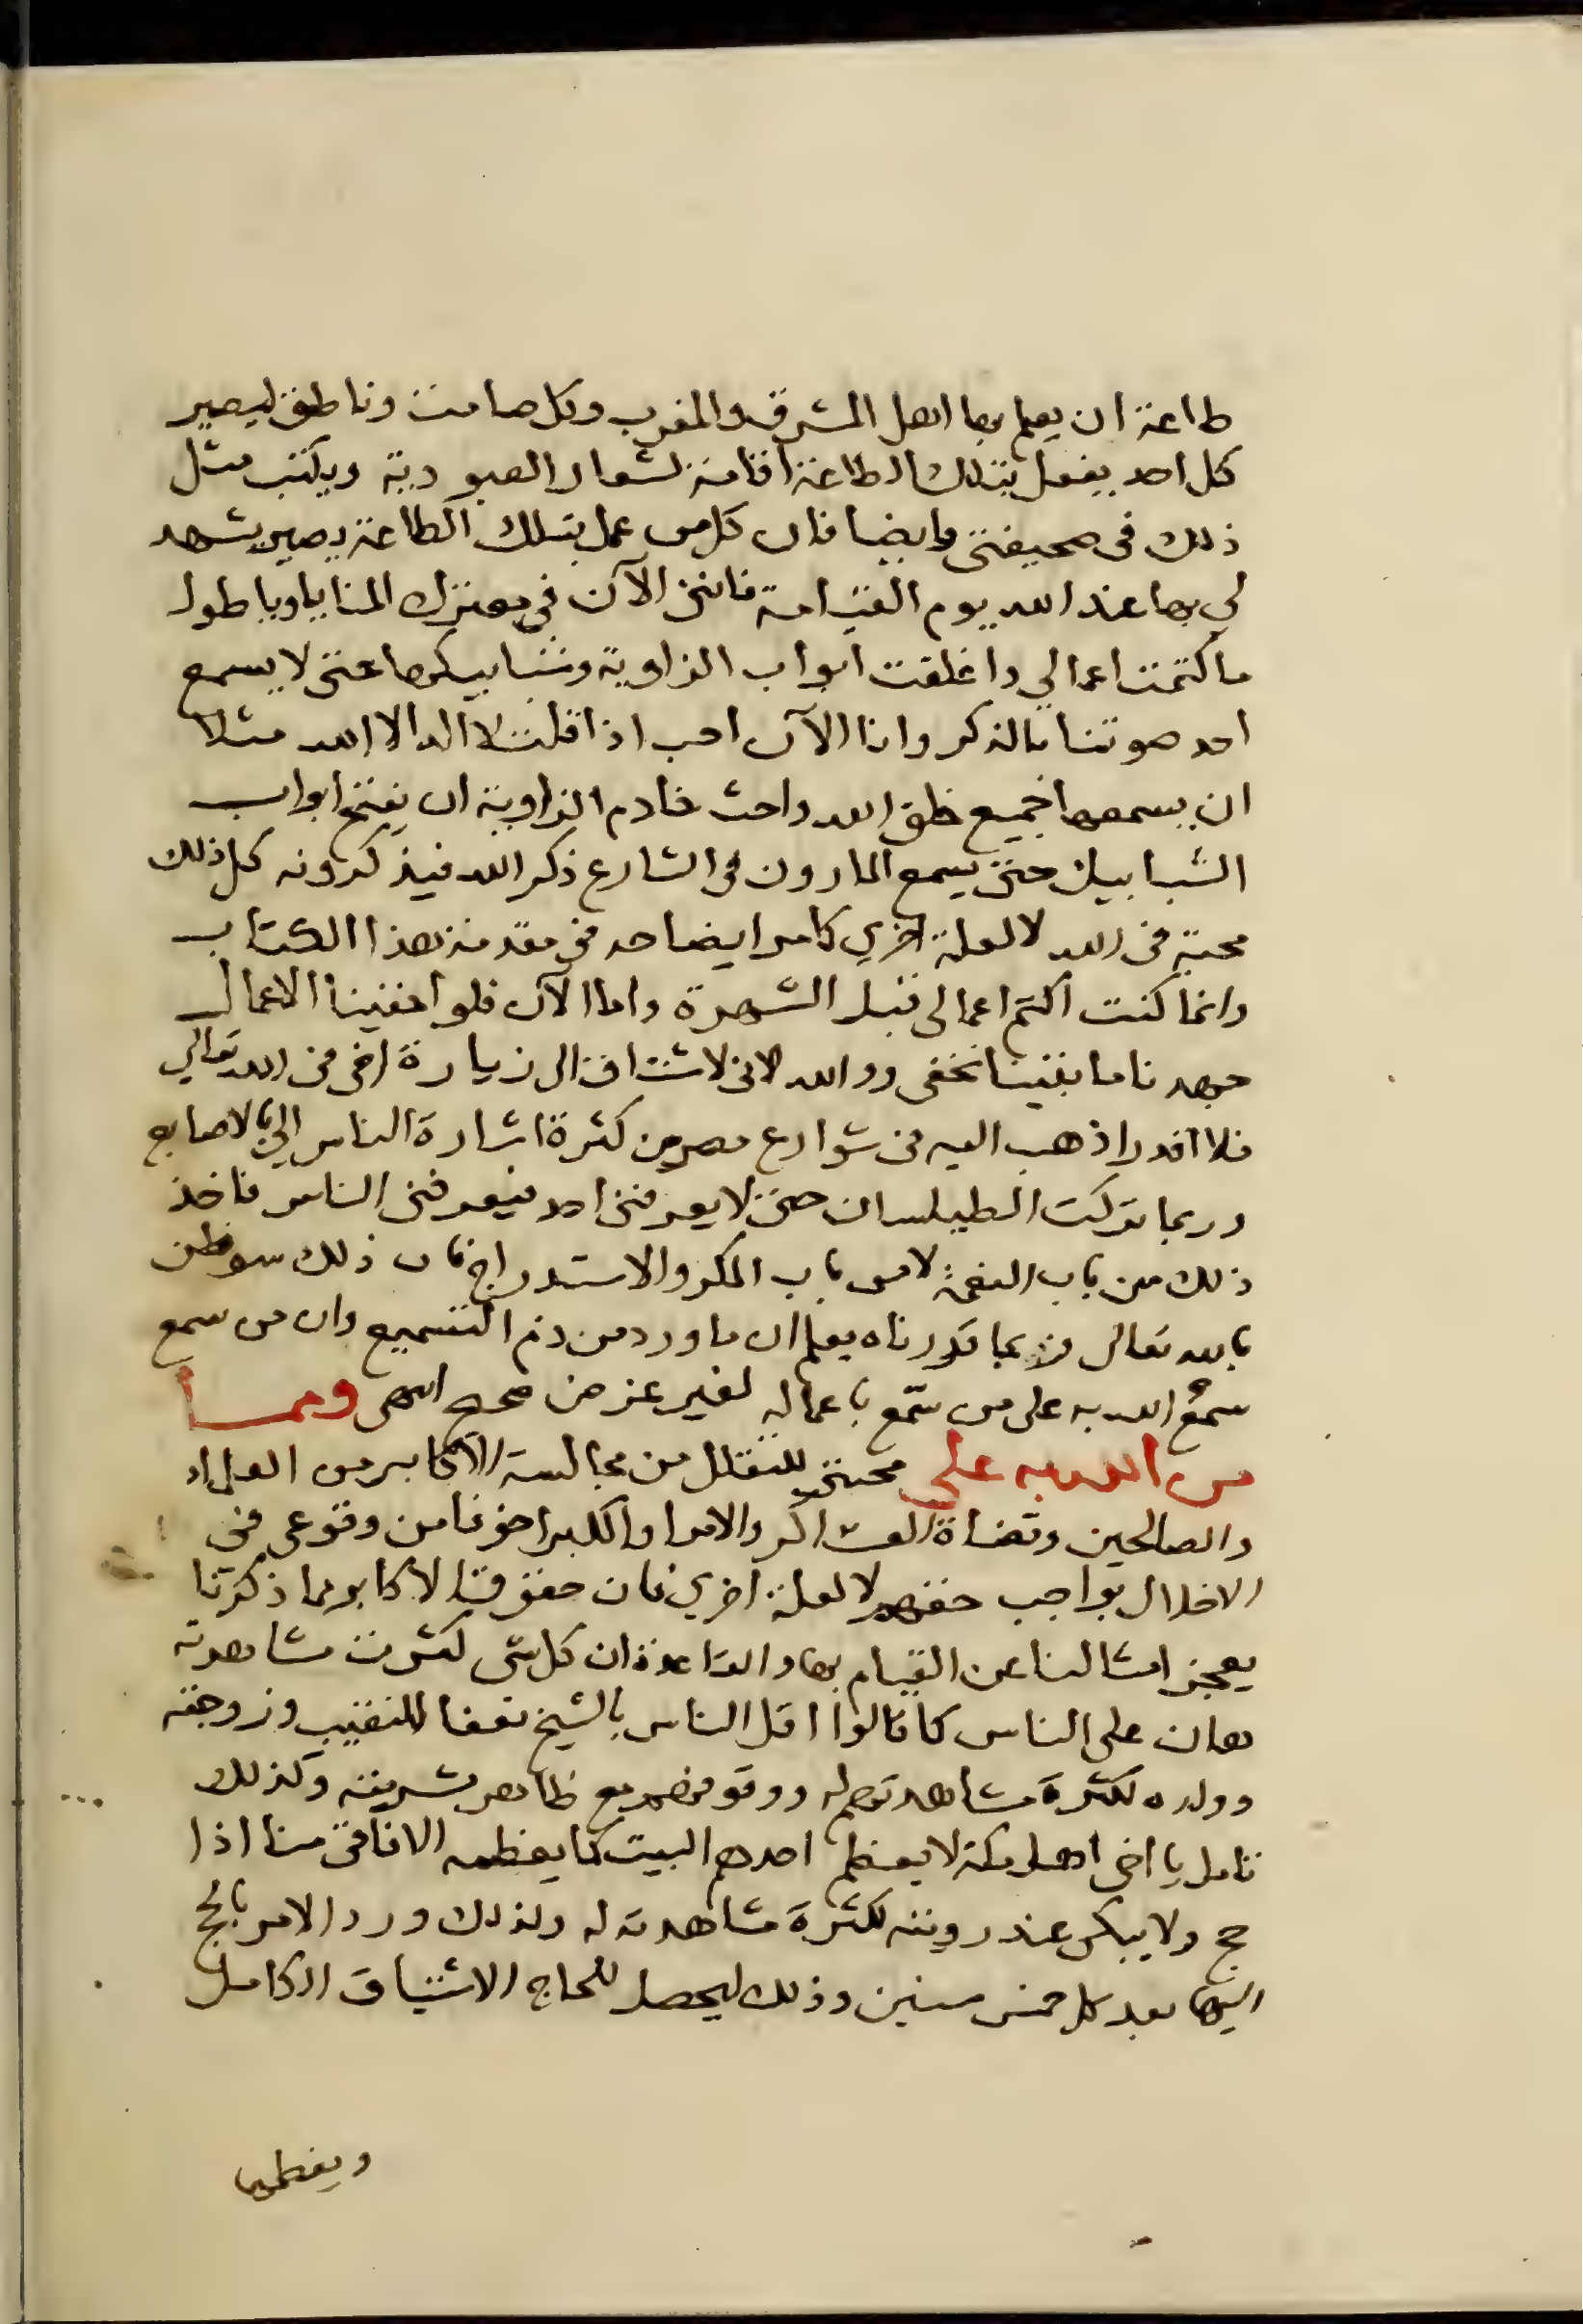 طاعة ان يعلم بها اهل المشرق والمغرب وكل صامت وناطق ليصير
كل احد يفعل بتلك الطاعة اقامة لشعار العبودية ويكتب مثل
ذلك في صحيفتي وايضا فان كل من عمل بتلك الطاعة يصير يشهد
لي بها عند الله يوم القيامة فانني الآن في معترك المنايا ويا طول
ما كتمت اعمالي واغلقت ابواب الزاوية وشبابيكها حتى لا يسمع
احد صوتنا بالذكر وانا الآن احب اذا قلت لا اله الا الله مثلا
ان يسمعها جميع خلق الله واحث خادم الزاوية ان يفتح ابواب
الشبابيك حتى يسمع المارون في الشارع ذكر الله فيذكرونه كل ذلك
محبة في الله لا لعلة اخري كما مر ايضاحه في مقدمة هذا الكتاب
وانما كنت اكتم اعمالي قبل الشهرة واما الآن فلو اخفينا الاعمال
جهدنا ما بقينا نخفى ووالله لاني لاشتاق الى زيارة اخي في الله تعالي
فلا اقدر اذهب اليه في شوارع مصر من كثرة اشارة الناس الي بالاصابع
وربما تركت الطيلسان حتى لا يعرفني احد فيعرفني الناس فاخذ
ذلك من باب النعمة لا من باب المكر والاستدراج فان ذلك سو ظن
بالله تعالى وبما قررناه يعلم ان ما ورد من ذم التسميع وان من سمع
سمع الله به على من سمع باعماله لغير غرض صحيح انتهى ومما
من الله به علي محبتي للتقلل من مجالسة الاكابر من العلماء
والصالحين وقضاة العساكر والامرا والكبرا خوفا من وقوعي في
الاخلال بواجب حقهم لا لعلة اخري فان حقوق الاكابر مما ذكرنا
يعجز امثالنا عن القيام بها والقاعدة ان كل شي كثرت مشاهدته
هان على الناس كما قالوا اقل الناس بالشيخ نفعا النقيب وزوجته
وولده لكثرة مشاهدتهم له ووقوفهم مع ظاهر بشريته وكذلك
تامل يا اخي اهل مكة لا يعظم احدهم البيت كما يعظمه الافاقي منا اذا
حج ولا يبكي عند رويته لكثرة مشاهدته له ولذلك ورد الامر بالحج
اليها بعد كل خمس سنين وذلك ليحصل للحاج الاشتياق الكامل
ويعظمها